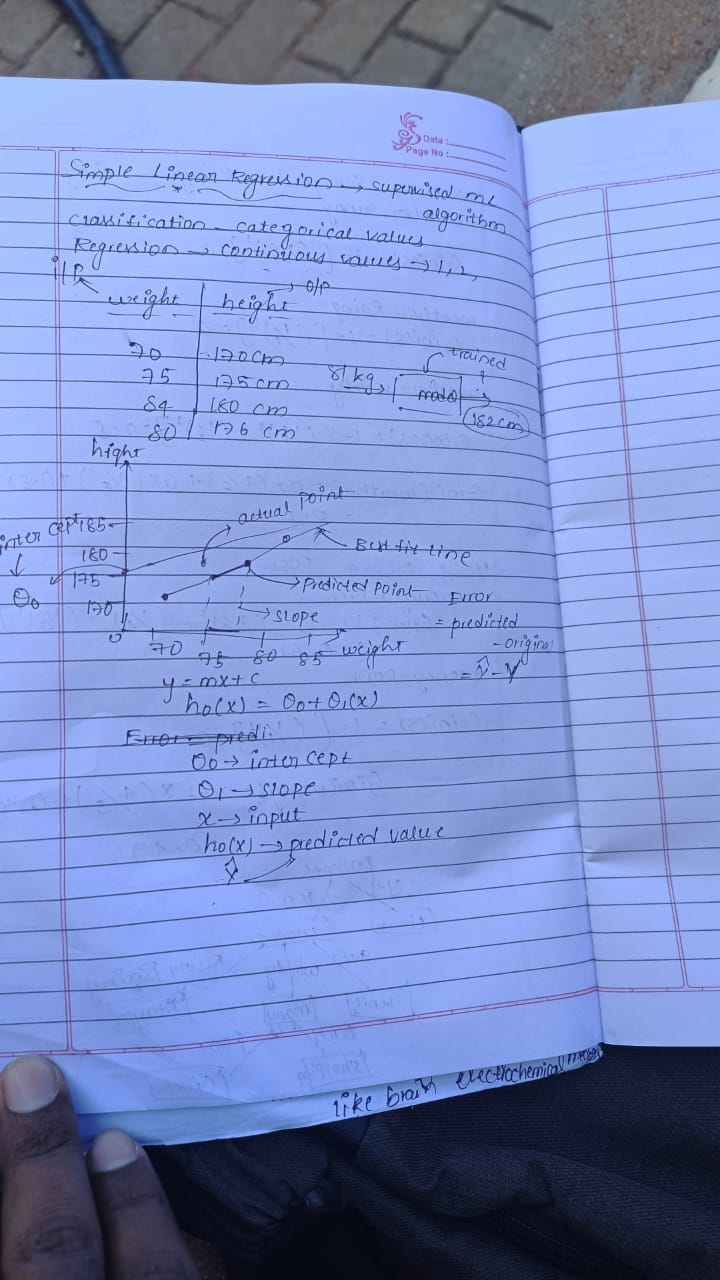 Date :
Page No :
Simple Linear Regression → supervised ML
algorithm
classification - categorical values
Regression → continuous values → 1, 2,
i/p
→ O/P
weight height
70 170cm
75 175cm
84 180 cm
80 176 cm
trained
81 kg → model →
182 cm
hight
actual point
inter cept 185
180
175
170
0
θ0
Best fit line
Predicted point
slope
70 75 80 85 weight
Error
= predicted
- original
= ŷ - y
y = mx + c
hθ(x) = θ0 + θ1(x)
Error = predi.
θ0 → inter cept
θ1 → slope
x → input
hθ(x) → predicted value
ŷ
like brain electrochemical